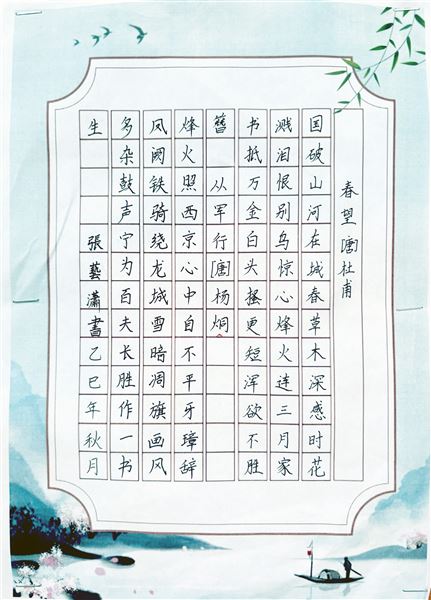 春望 [唐] 杜甫
国破山河在城春草木深感时花
溅泪恨别鸟惊心烽火连三月家
书抵万金白头搔更短浑欲不胜
簪 从军行 [唐] 杨炯
烽火照西京心中自不平牙璋辞
凤阙铁骑绕龙城雪暗凋旗画风
多杂鼓声宁为百夫长胜作一书
生 張藝瀟書乙巳年秋月